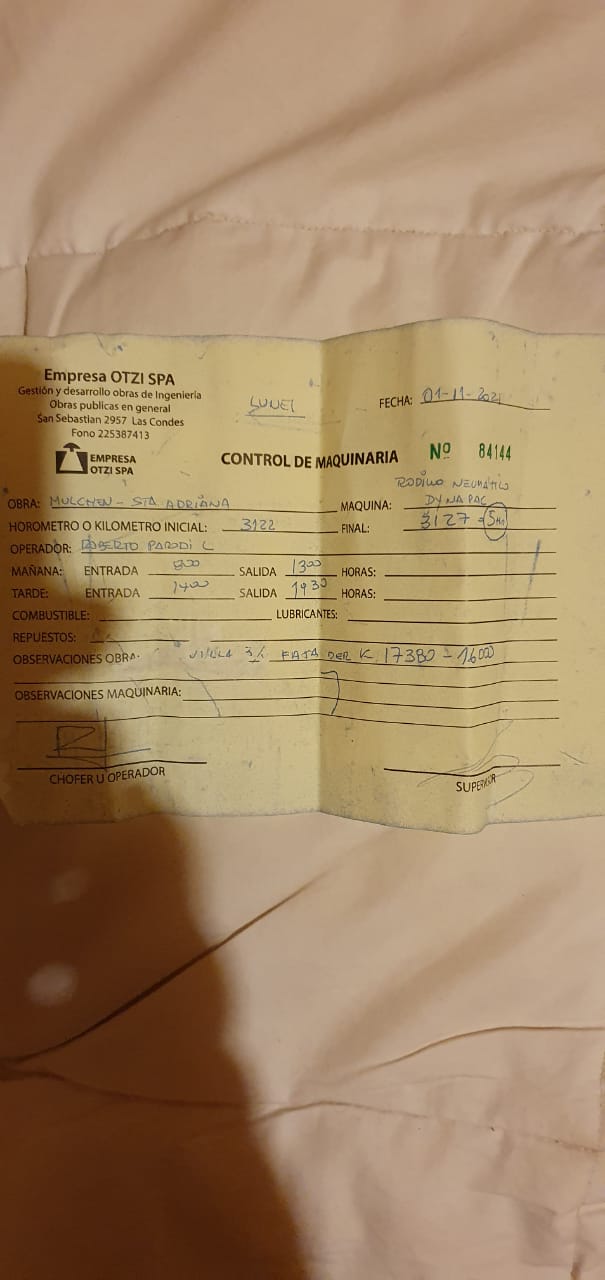 Empresa OTZI SPA
Gestión y desarrollo obras de Ingeniería
Obras publicas en general
San Sebastian 2957 Las Condes
Fono 225387413
LUNES
FECHA: 01-11-2021
EMPRESA
OTZI SPA
CONTROL DE MAQUINARIA Nº 84144
RODILLO NEUMÁTICO
OBRA: MULCHEN - STA. ADRIANA MAQUINA: DYNAPAC
HOROMETRO O KILOMETRO INICIAL: 3122 FINAL: 3127 = 5Hrs
OPERADOR: ROBERTO PARODI C
MAÑANA: ENTRADA 800 SALIDA 1300 HORAS:
TARDE: ENTRADA 1400 SALIDA 1930 HORAS:
COMBUSTIBLE: LUBRICANTES:
REPUESTOS:
OBSERVACIONES OBRA: FAJA DER K 17380 - 16000
OBSERVACIONES MAQUINARIA:
CHOFER U OPERADOR
SUPERVISOR